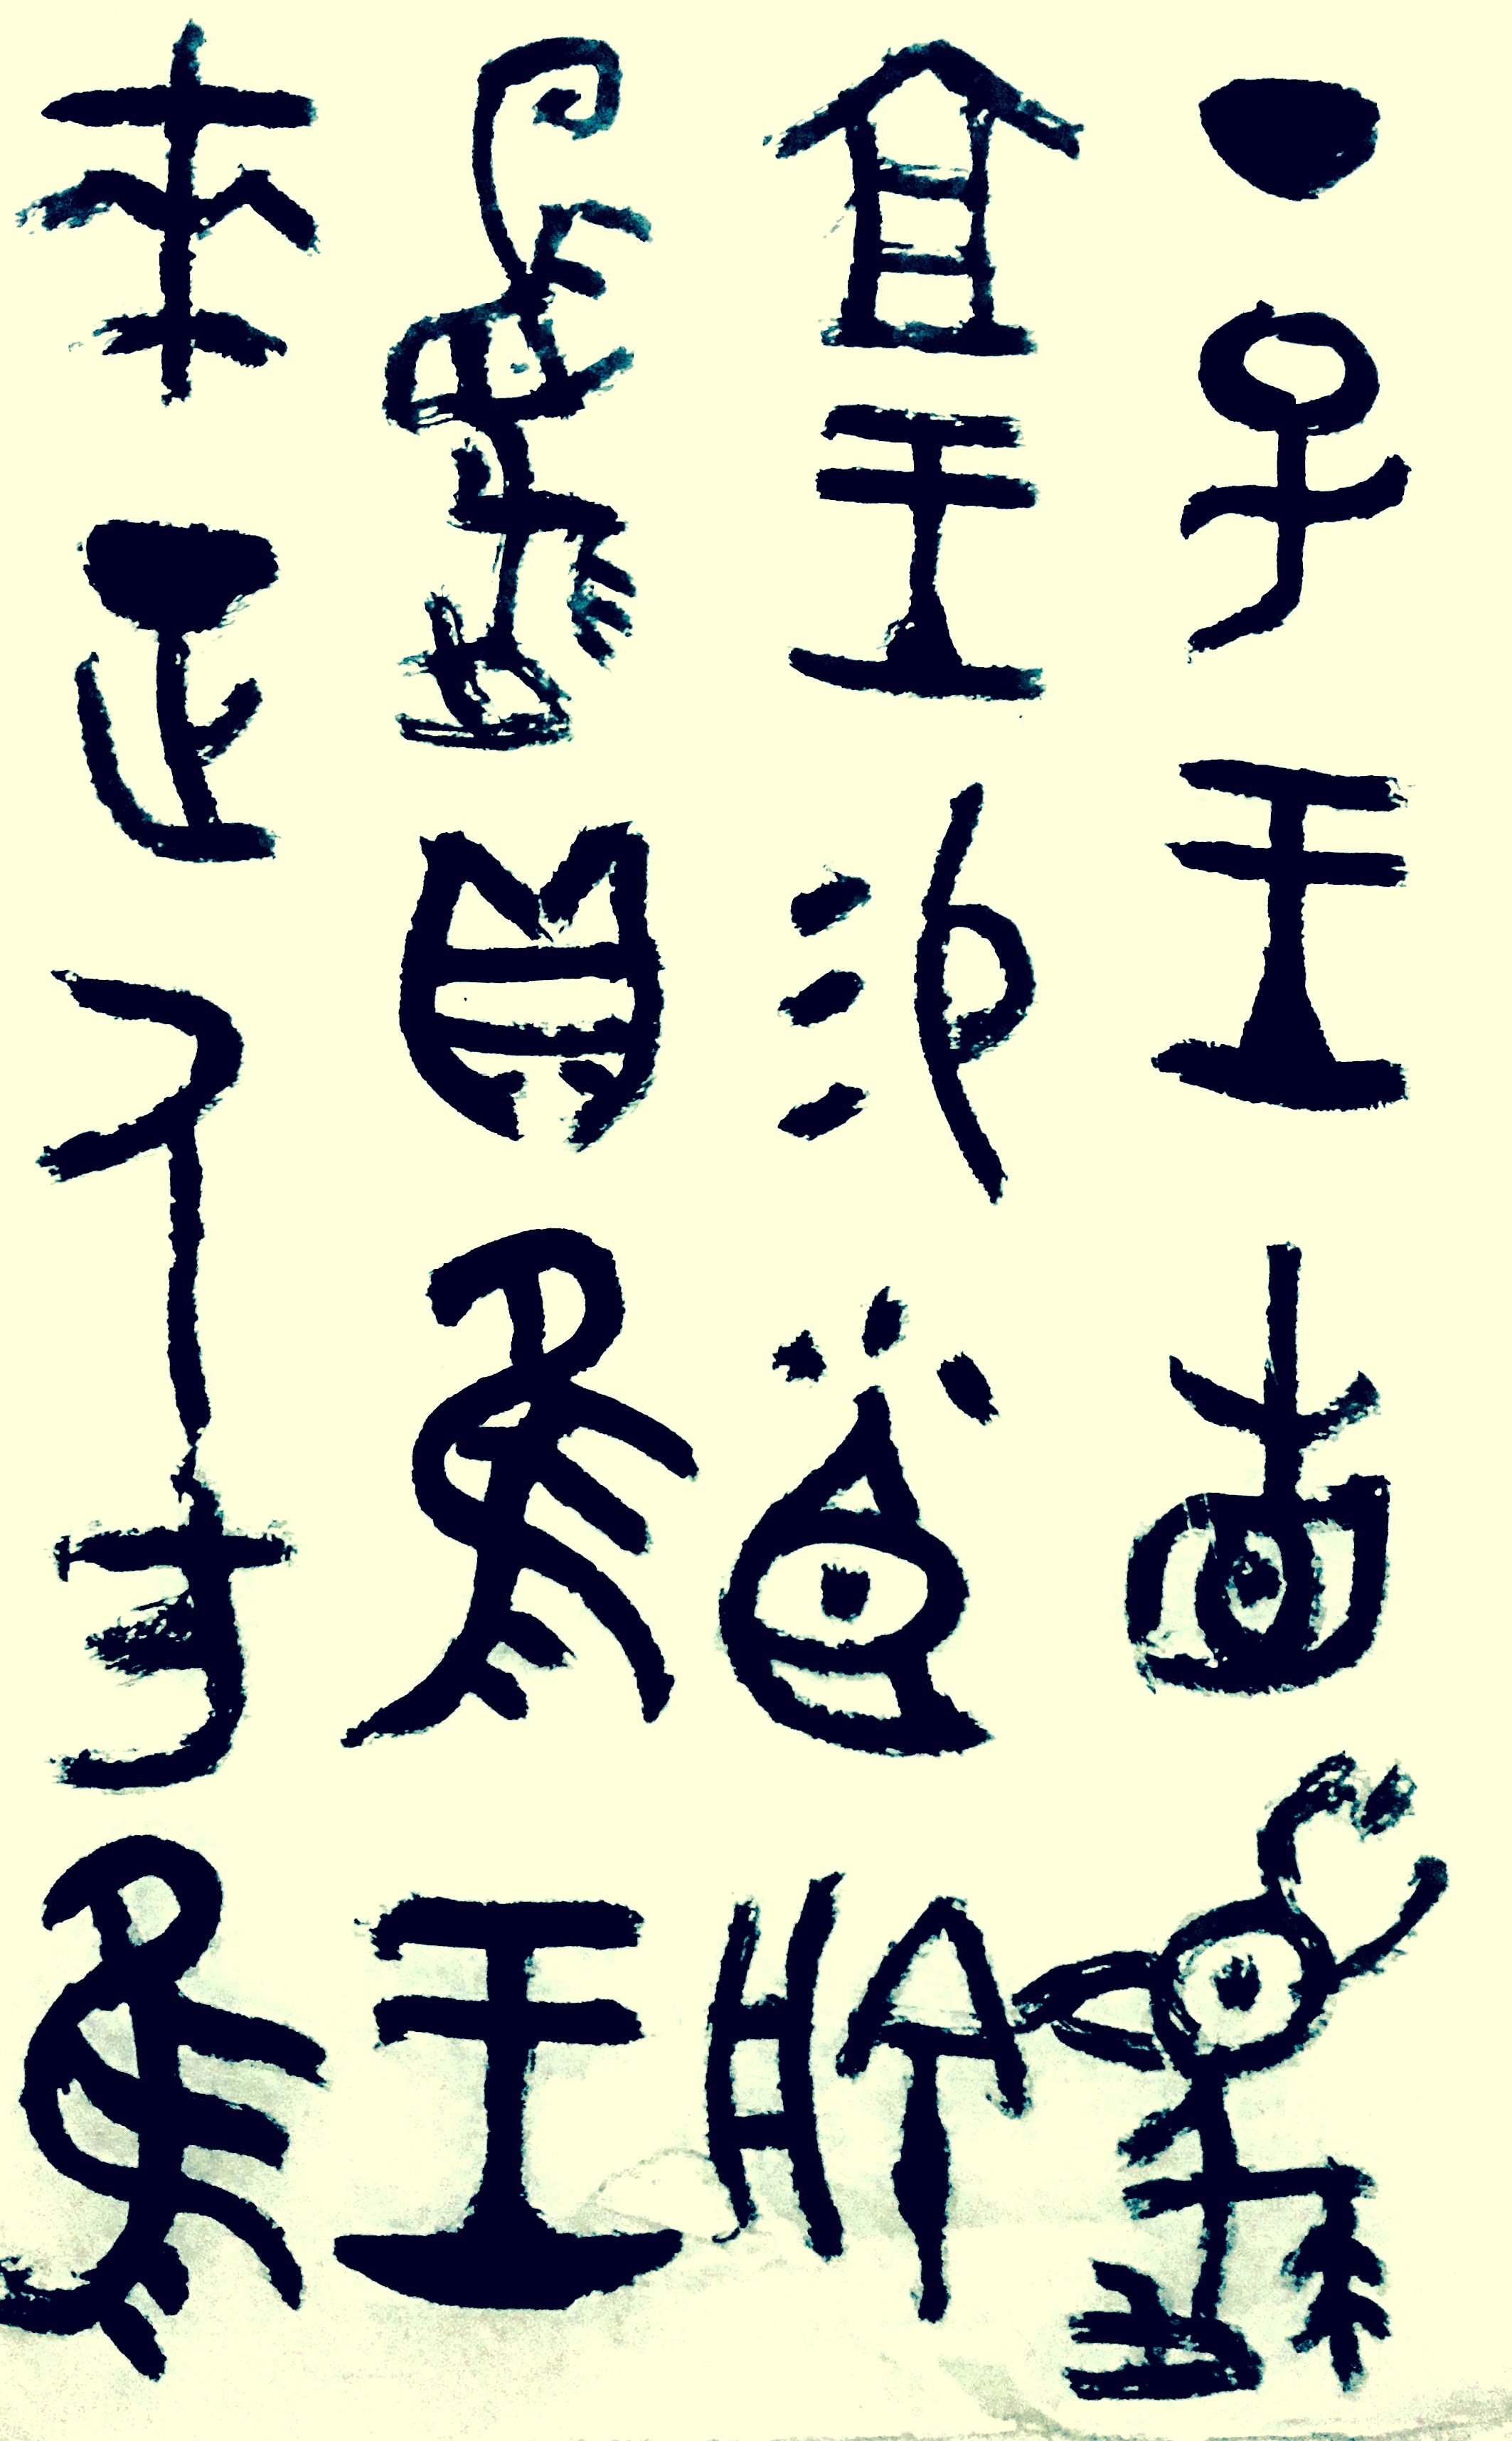 丁巳王省夔
京王易小臣艅
夔貝隹王
來正人方隹